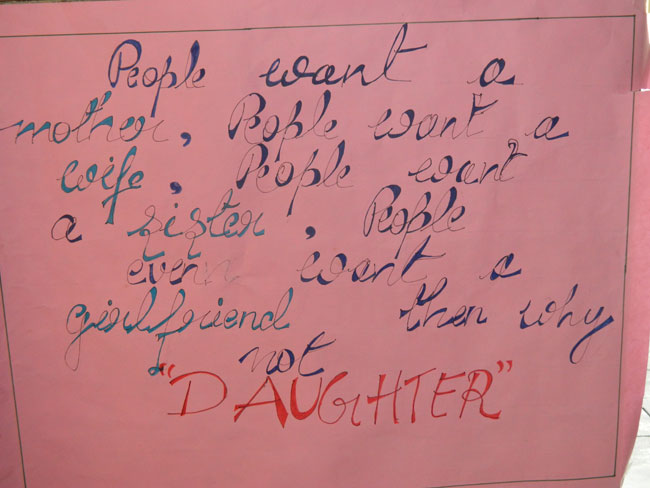 People want a
mother, People want a
wife, People want
a sister, People
even want a
girlfriend then why
not
"DAUGHTER"